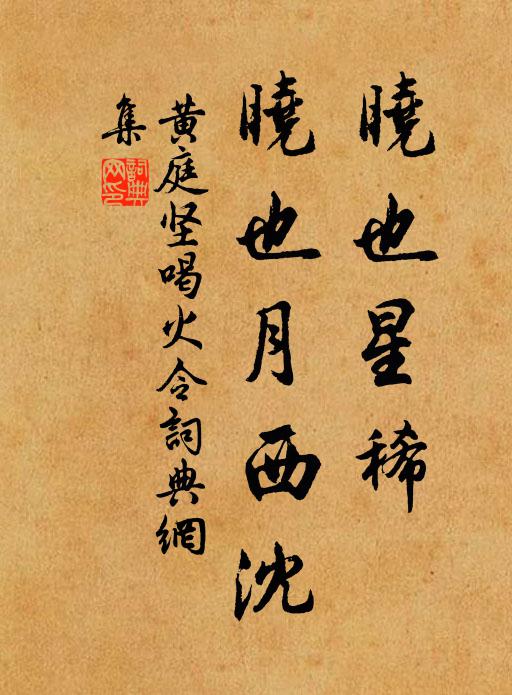 曉也星稀
曉也月西沈
黄庭坚喝火令詞典網
集
詞典
网印